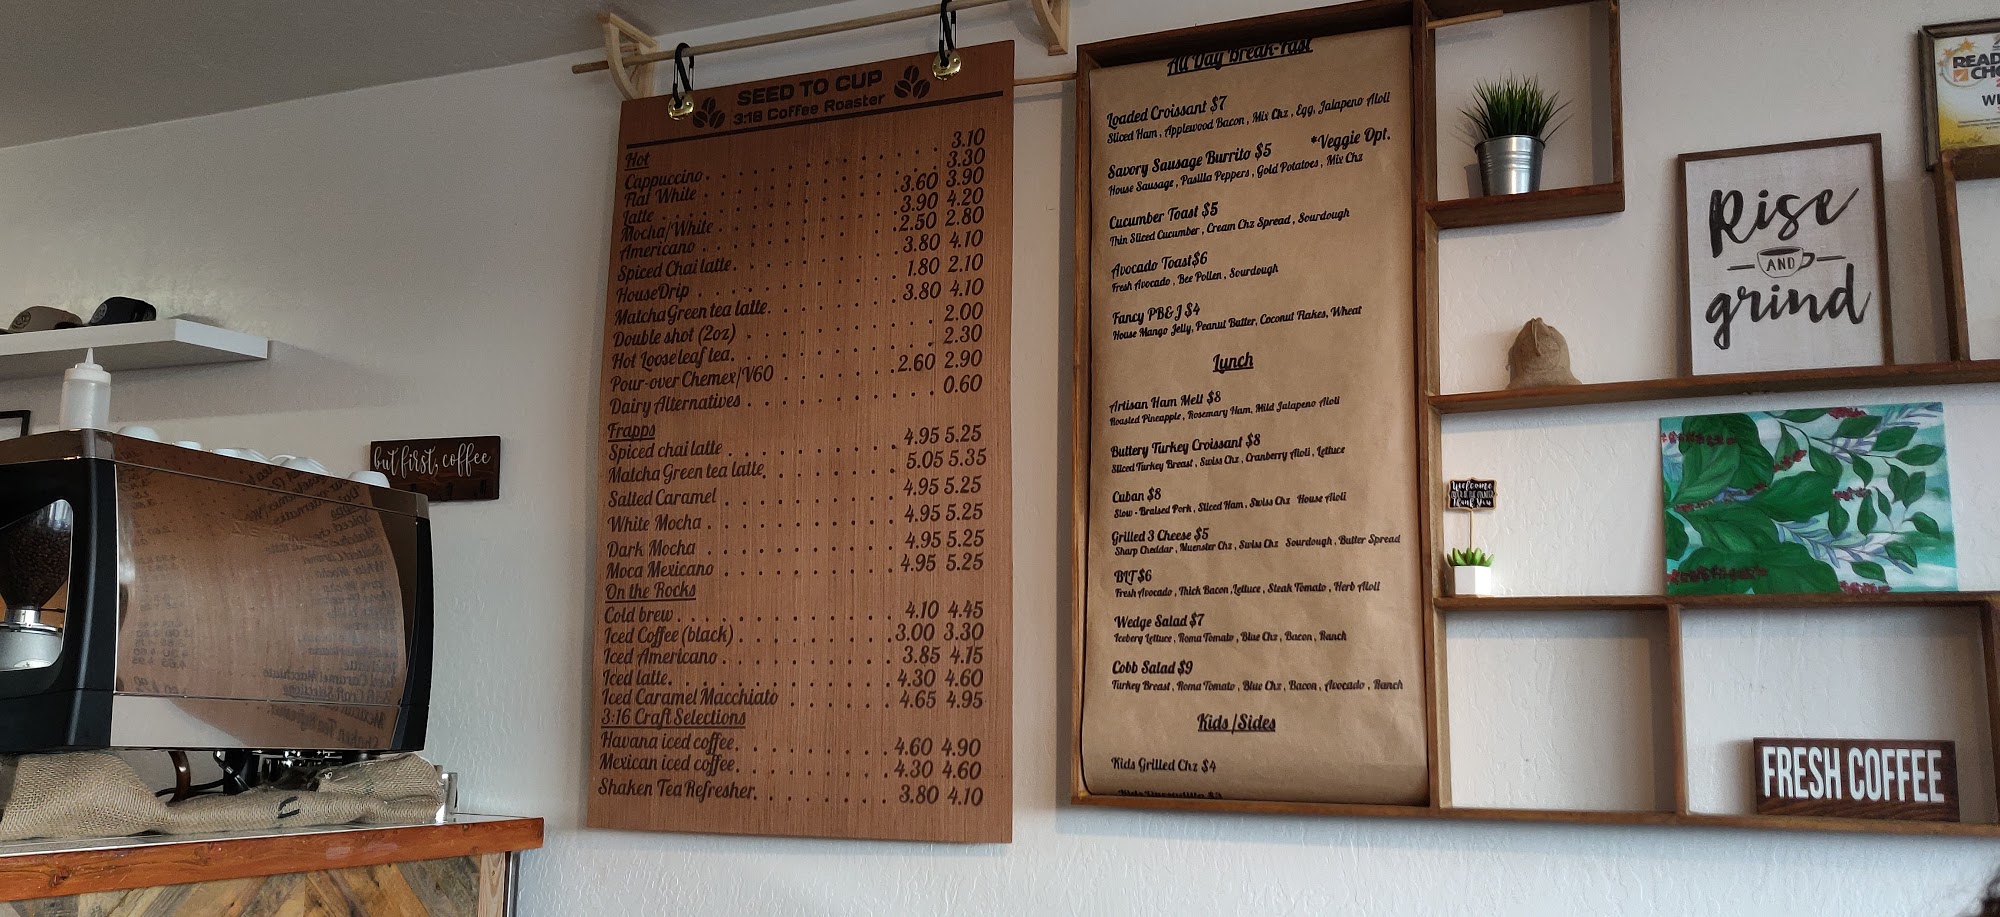 SEED TO CUP
3:16 Coffee Roaster
Hot
Cappuccino 3.10
Flat White 3.30
Latte 3.60 3.90
Mocha/White 3.90 4.20
Americano 2.50 2.80
Spiced Chai latte 3.80 4.10
HouseDrip 1.80 2.10
Matcha Green tea latte 3.80 4.10
Double shot (2oz) 2.00
Hot Looseleaf tea 2.30
Pour-over Chemex/V60 2.60 2.90
Dairy Alternatives 0.60
Frapps
Spiced chai latte 4.95 5.25
Matcha Green tea latte 5.05 5.35
Salted Caramel 4.95 5.25
White Mocha 4.95 5.25
Dark Mocha 4.95 5.25
Moca Mexicano 4.95 5.25
On the Rocks
Cold brew 4.10 4.45
Iced Coffee (black) 3.00 3.30
Iced Americano 3.85 4.15
Iced latte 4.30 4.60
Iced Caramel Macchiato 4.65 4.95
3:16 Craft Selections
Havana iced coffee 4.60 4.90
Mexican iced coffee 4.30 4.60
Shaken Tea Refresher 3.80 4.10
All Day Break-fast
Loaded Croissant $7
Sliced Ham, Applewood Bacon, Mix Chz, Egg, Jalapeno Aioli
Savory Sausage Burrito $5 *Veggie Opt.
House Sausage, Pasilla Peppers, Gold Potatoes, Mix Chz
Cucumber Toast $5
Thin Sliced Cucumber, Cream Chz Spread, Sourdough
Avocado Toast $6
Fresh Avocado, Bee Pollen, Sourdough
Fancy PB&J $4
House Mango Jelly, Peanut Butter, Coconut Flakes, Wheat
Lunch
Artisan Ham Melt $8
Roasted Pineapple, Rosemary Ham, Mild Jalapeno Aioli
Buttery Turkey Croissant $8
Sliced Turkey Breast, Swiss Chz, Cranberry Aioli, Lettuce
Cuban $8
Slow-Braised Pork, Sliced Ham, Swiss Chz House Aioli
Grilled 3 Cheese $5
Sharp Cheddar, Muenster Chz, Swiss Chz Sourdough, Butter Spread
BLT $6
Fresh Avocado, Thick Bacon, Lettuce, Steak Tomato, Herb Aioli
Wedge Salad $7
Iceberg Lettuce, Roma Tomato, Blue Chz, Bacon, Ranch
Cobb Salad $9
Turkey Breast, Roma Tomato, Blue Chz, Bacon, Avocado, Ranch
Kids/Sides
Kids Grilled Chz $4
but first, coffee
Rise
AND
grind
Welcome
Thank You
FRESH COFFEE